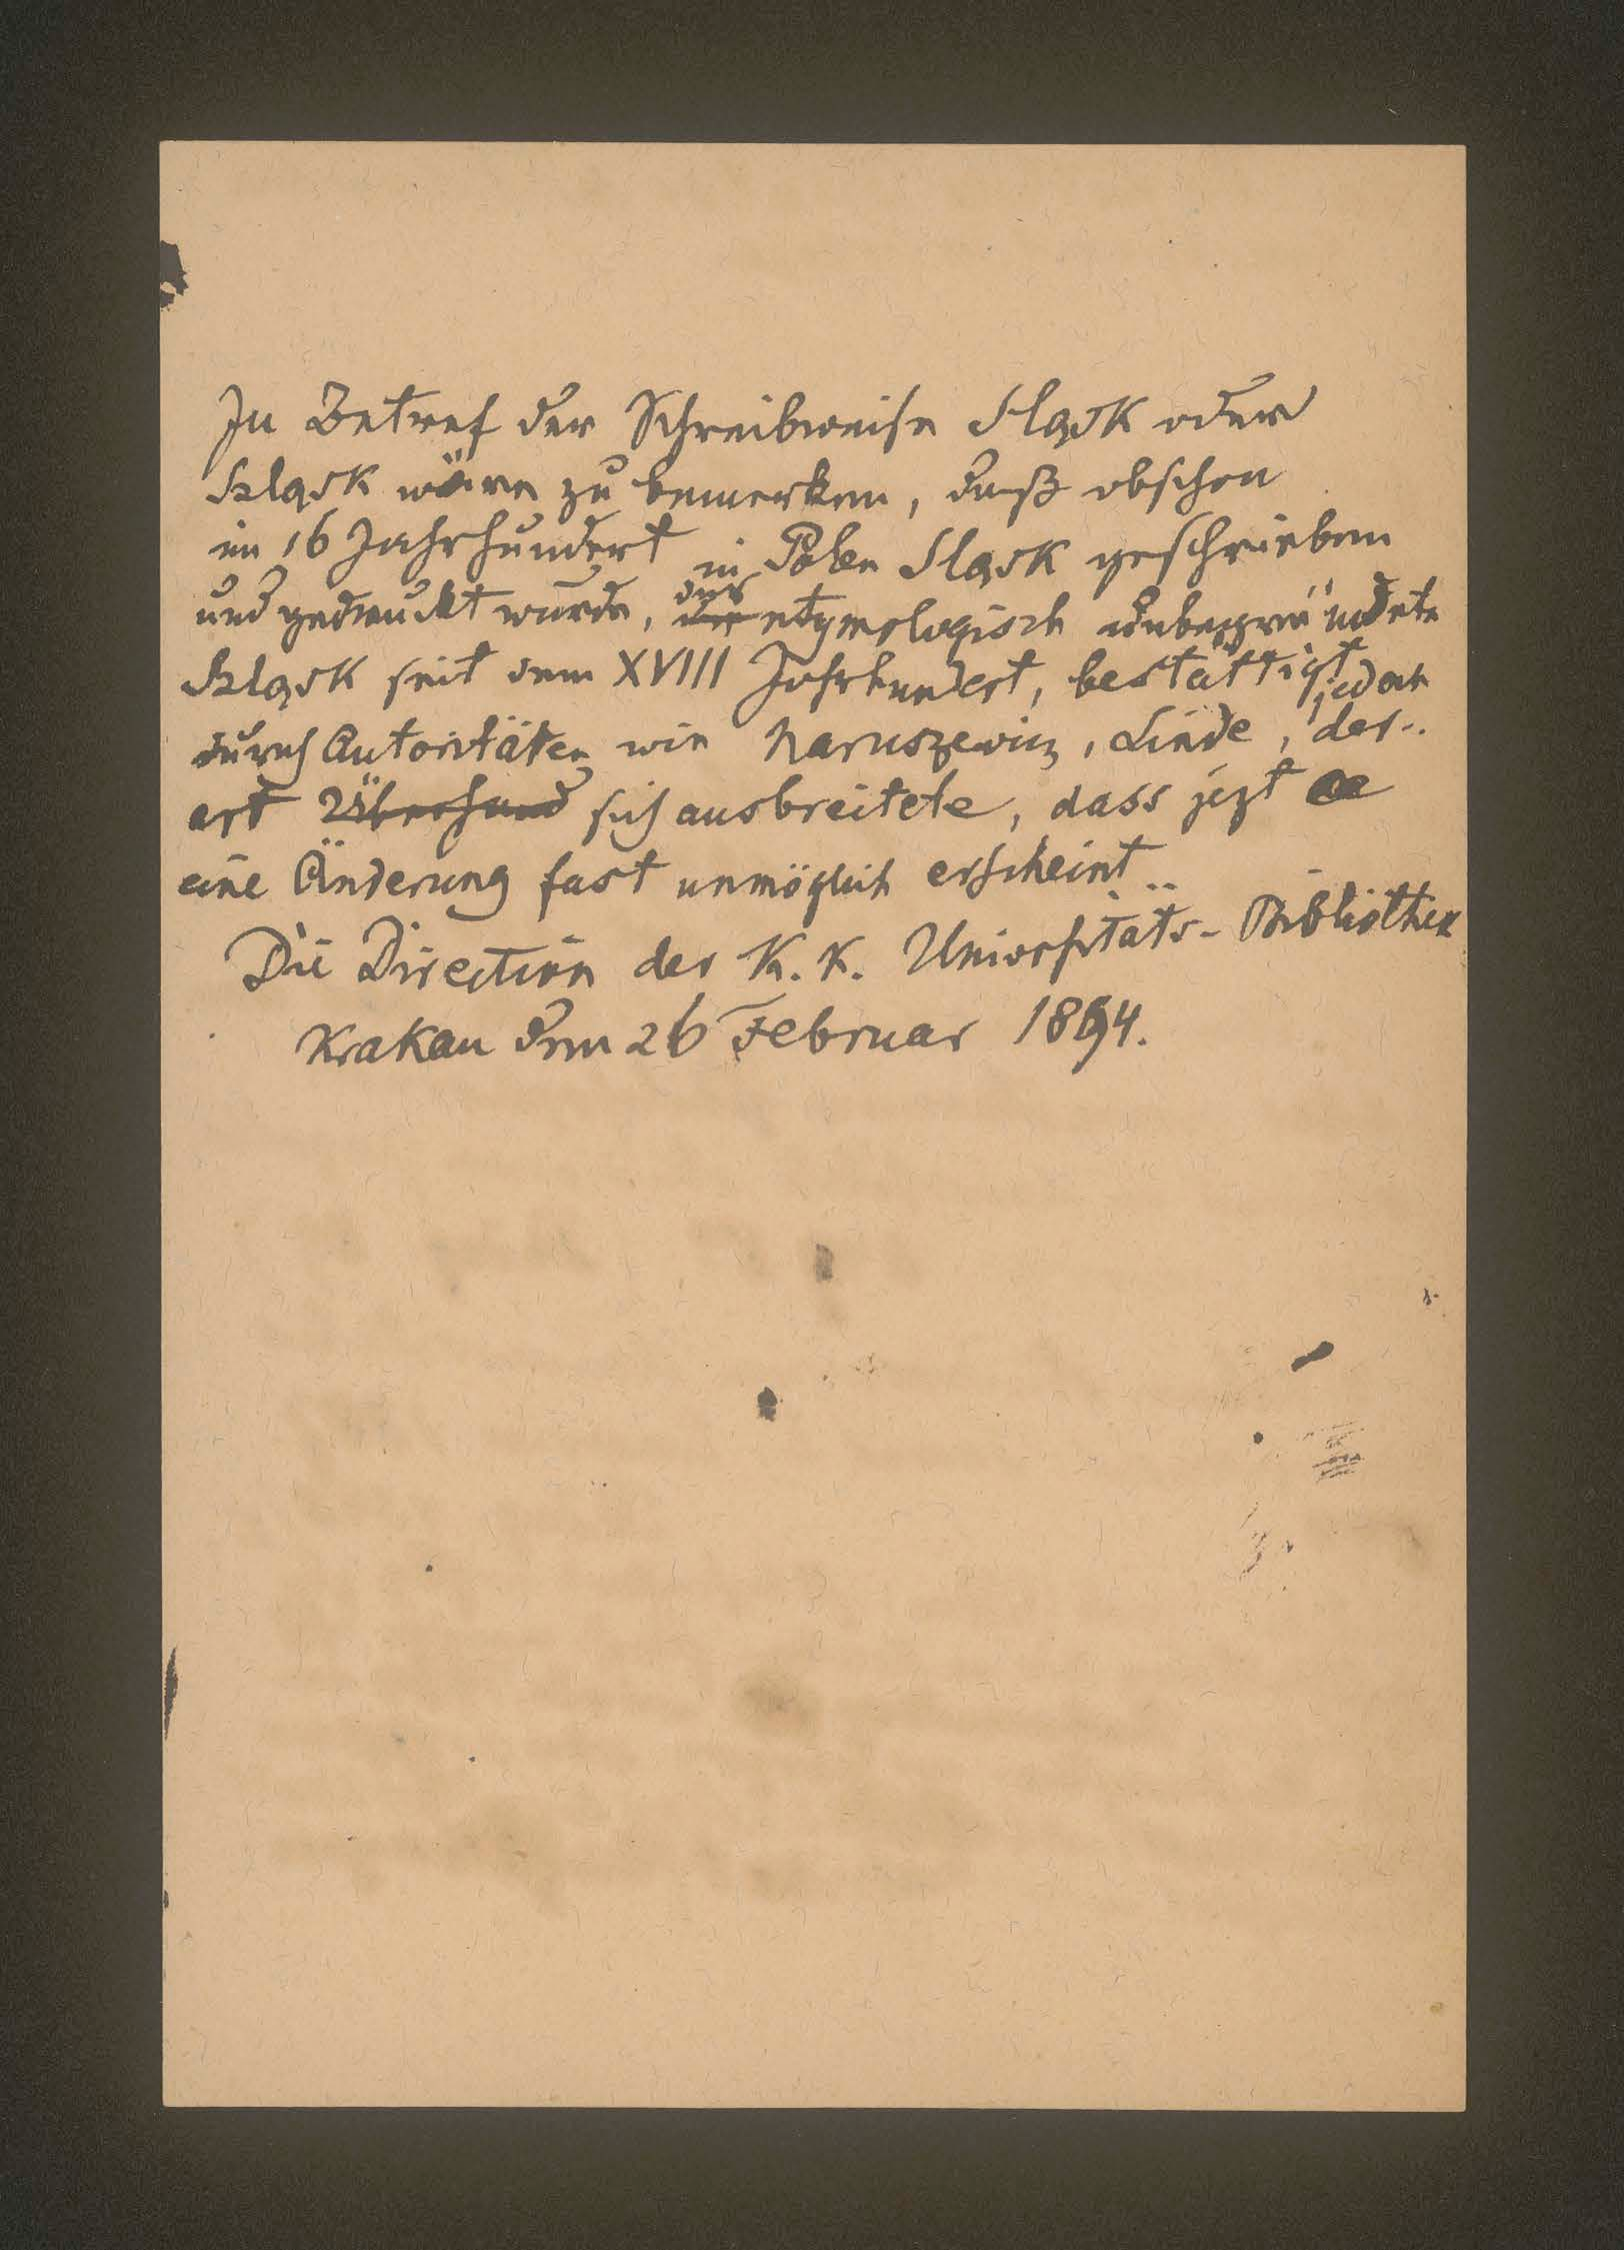 In Betref der Schreibweise Sląsk oder
Szląsk wäre zu bemerken, daß obschon
im 16 Jahrhundert in Polen Sląsk geschrieben
und gedruckt wurde, das etymologisch unbegründete
Szląsk seit dem XVIII Jahrhundert, bestättigt
durch Autoritäten wie Naruszewicz, Linde, jedoch der-
art Überhand sich ausbreitete, dass jezt
eine Änderung fast unmöglich erscheint..
Die Direction der K. K. Universitäts-Bibliothek
Krakau den 26 Februar 1894.